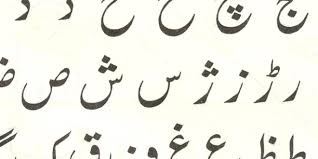 ج چ ح خ د
ر ڑ ز ژ س ش ص ض
ط ظ ع غ ف ق ک گ